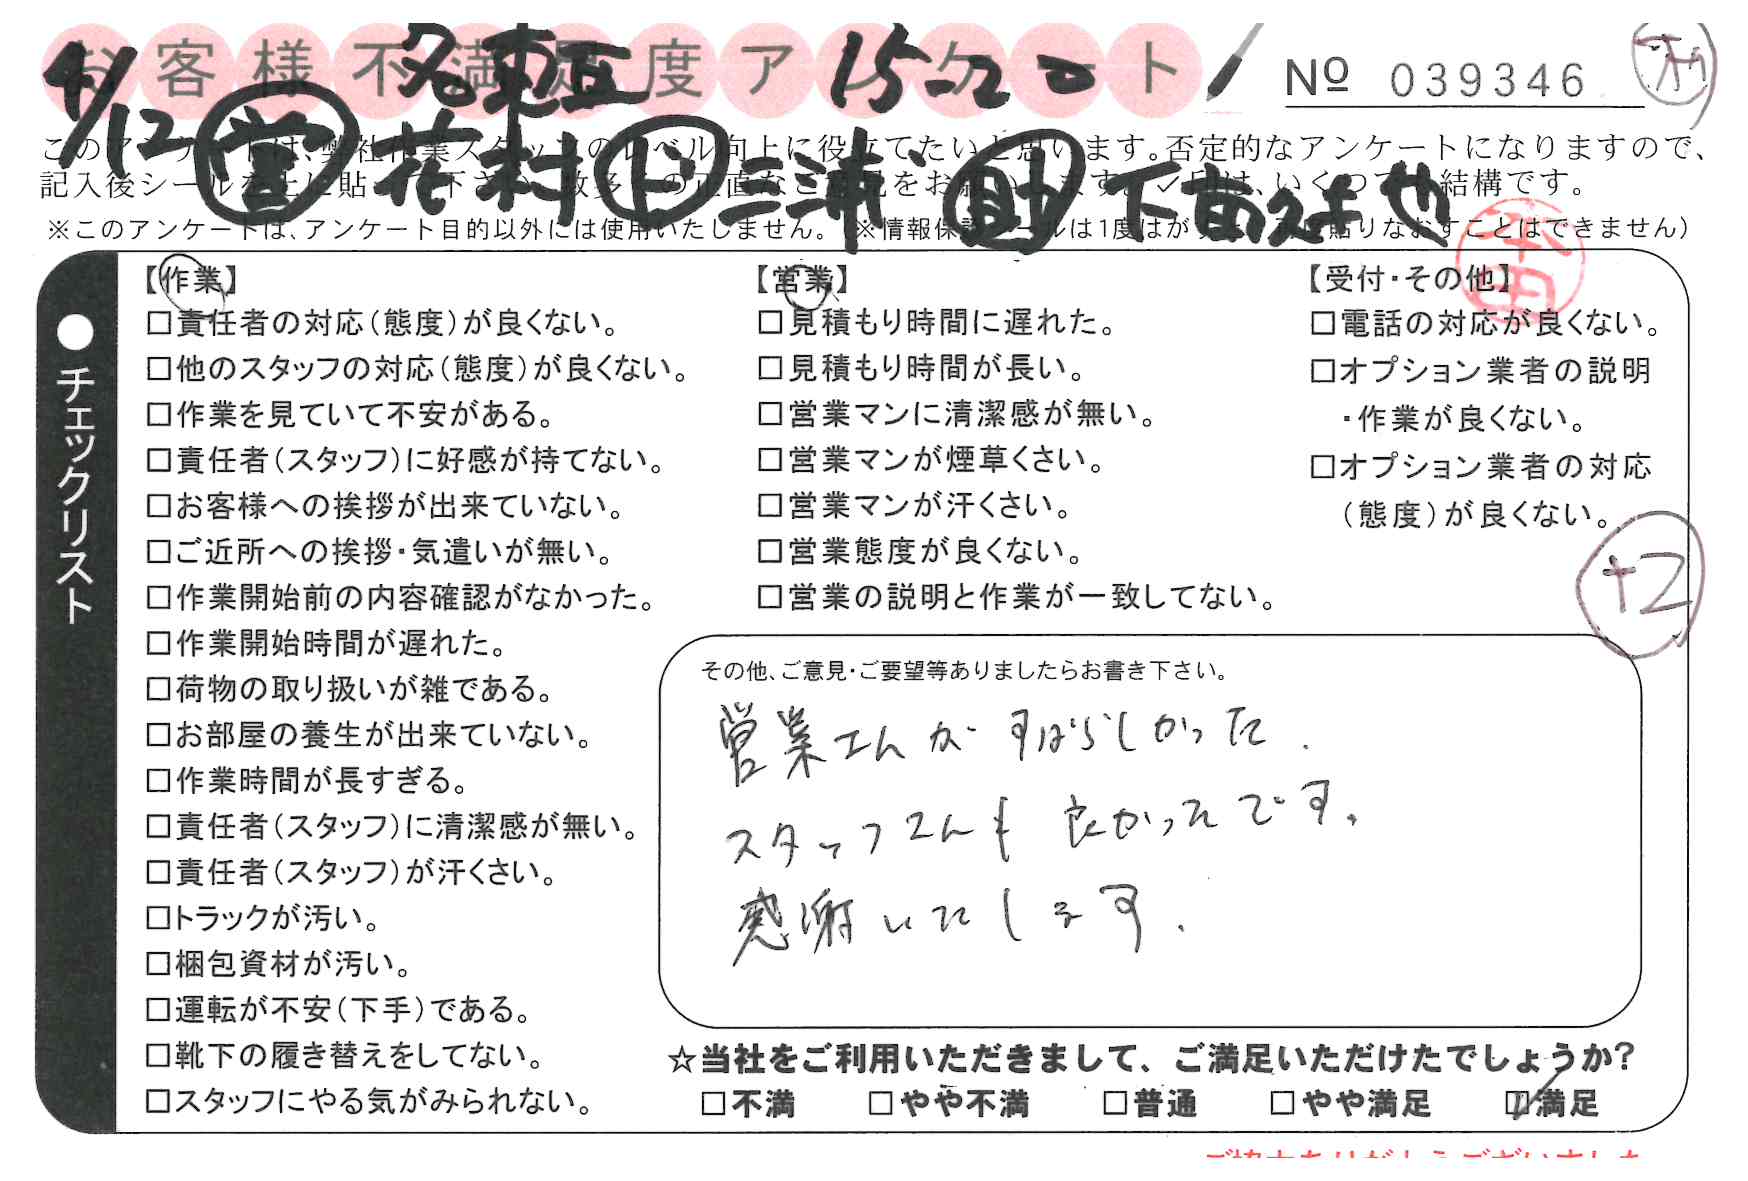 お客様不満足度アンケート
Nº 039346
4/12 名東区 15-20
営 花村 ド 三浦 助
このアンケートは、弊社作業スタッフのレベル向上に役立てたいと思います。否定的なアンケートになりますので、
※このアンケートは、アンケート目的以外には使用いたしません。
●チェックリスト
【作業】
□責任者の対応(態度)が良くない。
□他のスタッフの対応(態度)が良くない。
□作業を見ていて不安がある。
□責任者(スタッフ)に好感が持てない。
□お客様への挨拶が出来ていない。
□ご近所への挨拶・気遣いが無い。
□作業開始前の内容確認がなかった。
□作業開始時間が遅れた。
□荷物の取り扱いが雑である。
□お部屋の養生が出来ていない。
□作業時間が長すぎる。
□責任者(スタッフ)に清潔感が無い。
□責任者(スタッフ)が汗くさい。
□トラックが汚い。
□梱包資材が汚い。
□運転が不安(下手)である。
□靴下の履き替えをしてない。
□スタッフにやる気がみられない。
【営業】
□見積もり時間に遅れた。
□見積もり時間が長い。
□営業マンに清潔感が無い。
□営業マンが煙草くさい。
□営業マンが汗くさい。
□営業態度が良くない。
□営業の説明と作業が一致してない。
【受付・その他】
□電話の対応が良くない。
□オプション業者の説明
・作業が良くない。
□オプション業者の対応
(態度)が良くない。
+2
その他、ご意見・ご要望等ありましたらお書き下さい。
営業さんがすばらしかった.
スタッフさんも良かったです。
感謝いたします.
☆当社をご利用いただきまして、ご満足いただけたでしょうか?
□不満 □やや不満 □普通 □やや満足 ☑満足
ご協力ありがとうございました